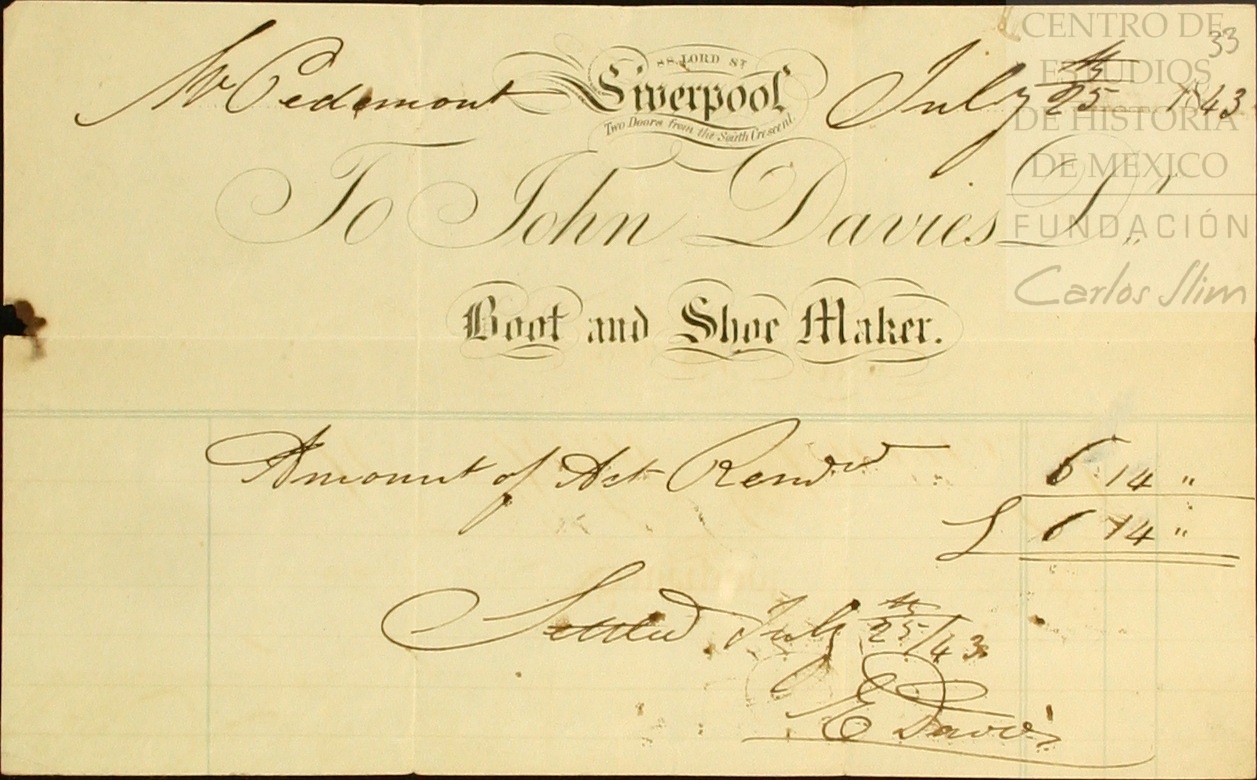 33
88. LORD ST
Mr Pedemont Liverpool July 25th 1843
Two Doors from the South Crescent.
To John Davies Dr
Boot and Shoe Maker.
Amount of Act Rendd 6 14 "
£ 6 14 "
Settled July 25th/43
E Davies
CENTRO DE
ESTUDIOS
DE HISTORIA
DE MEXICO
FUNDACIÓN
Carlos Slim